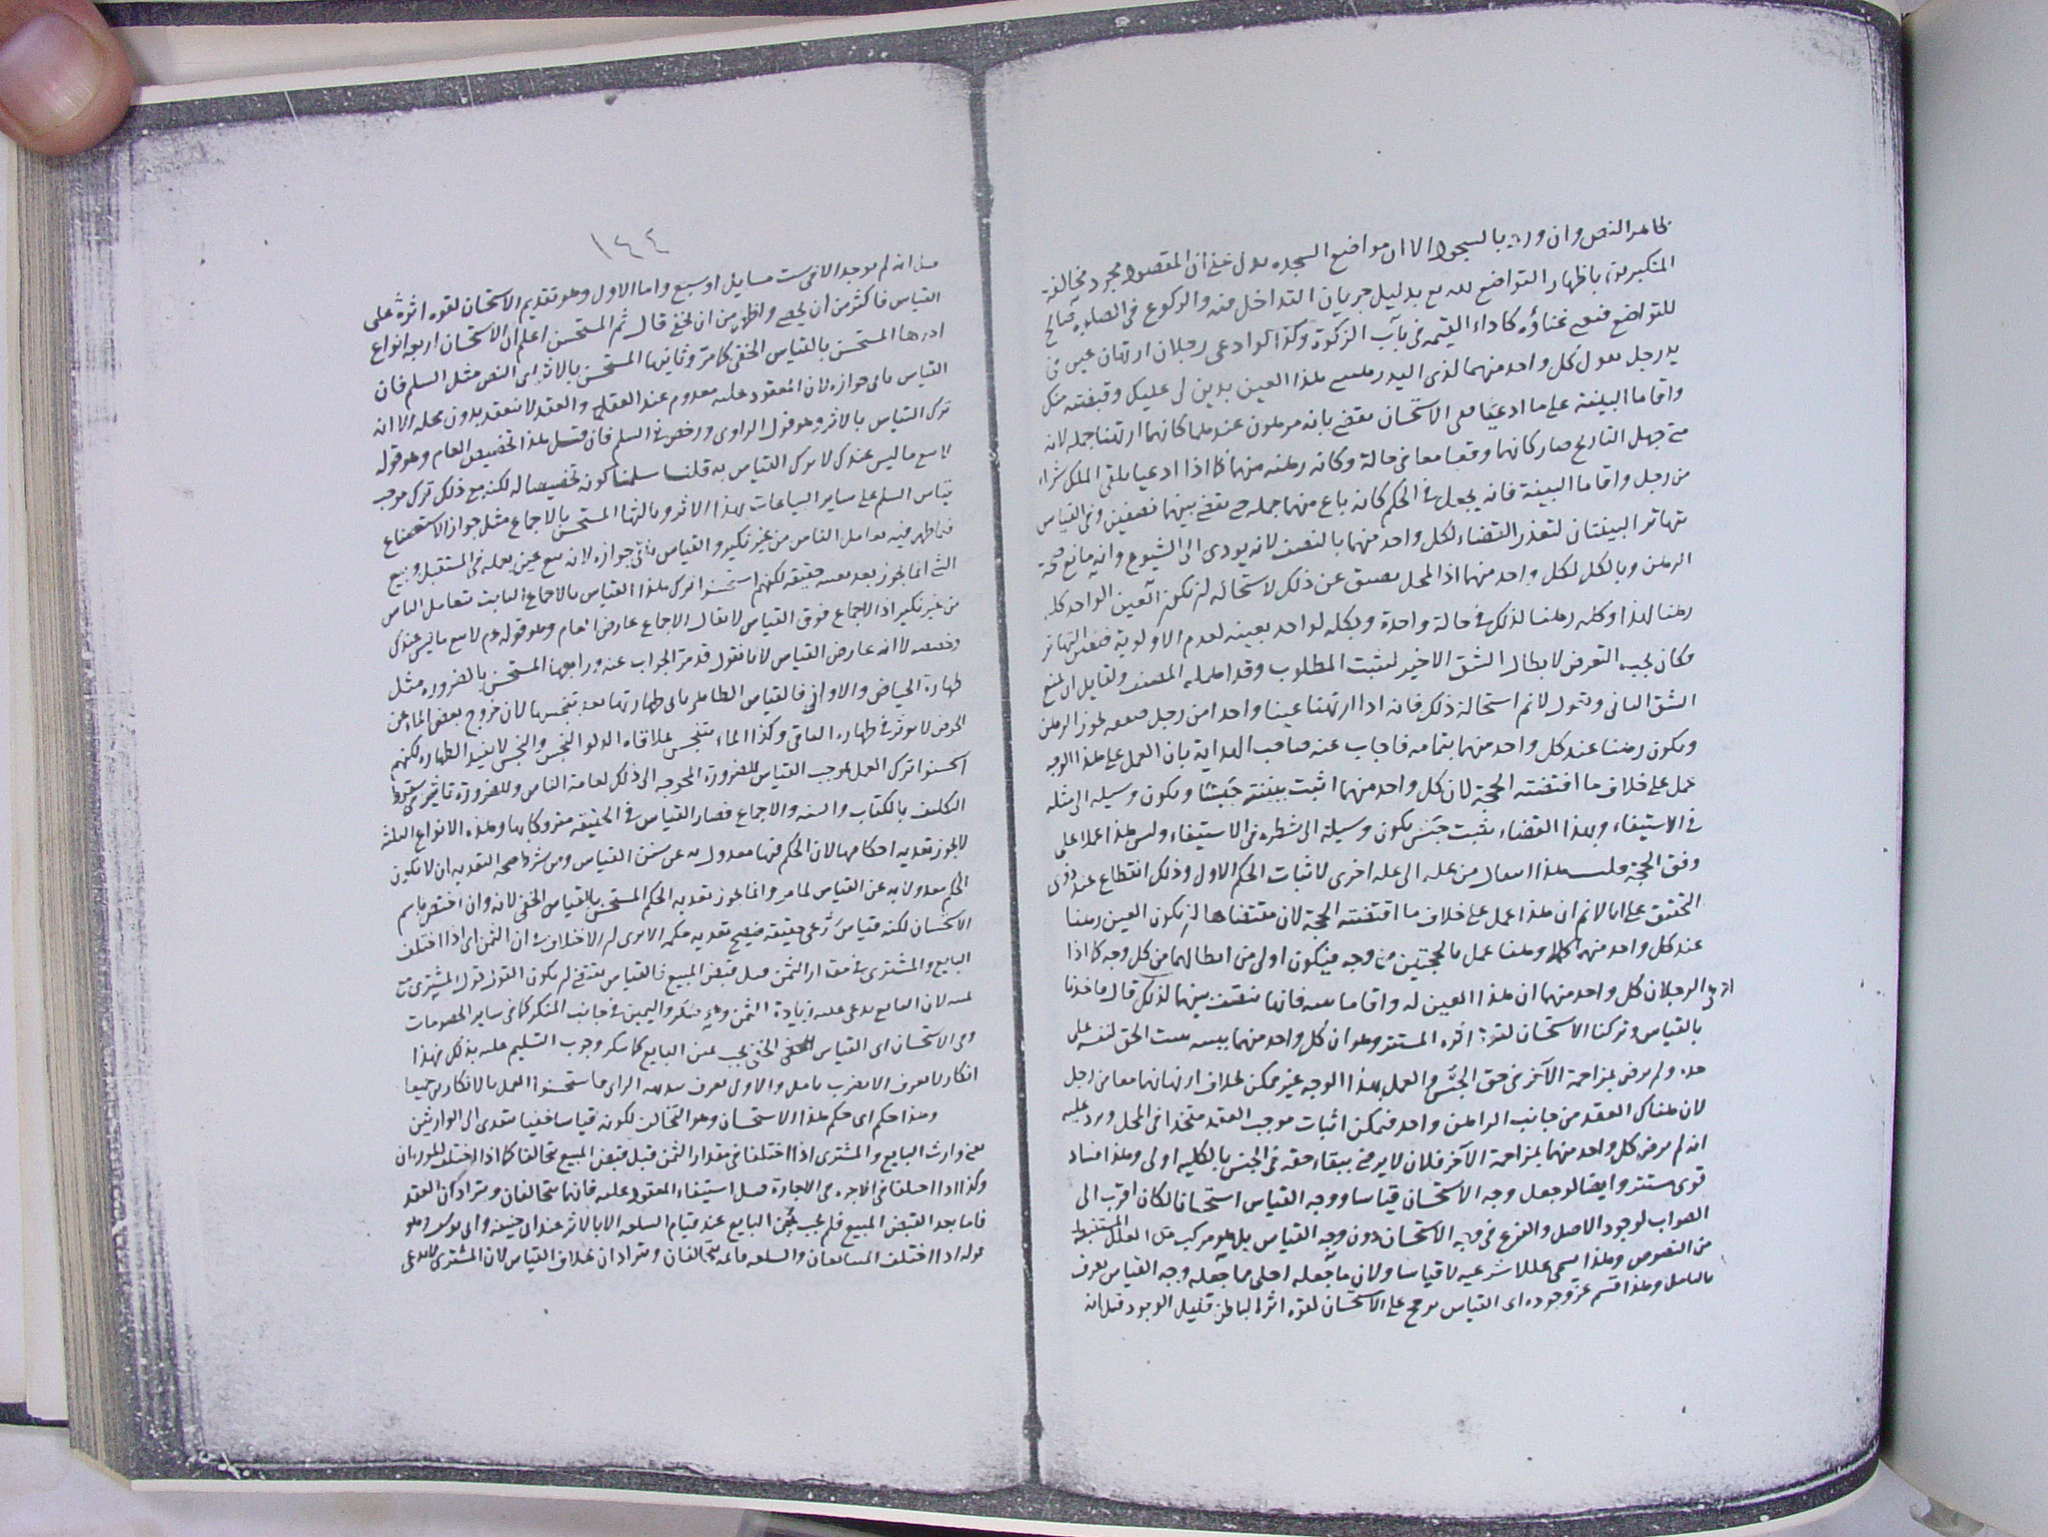 ظاهر النص وان ورد بالسجود الا ان مواضع السجده يدل على ان المقصود مجرد مخالفة
المتكبرين باظهار التواضع لله مع بدليل جريان التداخل فيه والركوع فى الصلوه صالح
للتواضع فيقع غناؤه كاداء القيمه فى باب الزكوة وكذا لو ادعى رجلان ارتهان عين فى
يد رجل يقول كل واحد منهما لذى اليد هذا العين بدين لى عليك وقبضته منك
واقاما البينة على ما ادعيا ففى الاستحسان يقضى بانه مرهون عندهما كانهما ارتهنا جمله لانه
متى جهل التاريخ صار كانهما وقعا معا فى حالة وكانه رهنه منهما كما اذا ادعيا تلقى الملك شراء
من رجل واقاما البينة فانه يجعل فى الحكم كانه باع منهما جمله حتى يقضى بينهما نصفين وفى القياس
تهاتر البينتان لتعذر القضاء لكل واحد منهما بالنصف لانه يودى الى الشيوع وانه مانع صحة
الرهن وبالكل لكل واحد منهما اذ المحل يضيق عن ذلك لاستحاله ان يكون العين الواحد كله
رهنا لهذا وكله رهنا لذلك فى حالة واحدة وبكله لواحد بعينه لعدم الاولوية فتعين التهاتر
فكان يجب التعرض لابطال الشق الاخير ليثبت المطلوب وقد اهمله المصنف ولقايل ان يمنع
الشق الثانى ويقول لا نم استحالة ذلك فانه اذا ارتهنا عينا واحدا من رجل صفقه يجوز الرهن
ويكون رهنا عند كل واحد منهما بتمامه فاجاب عنه صاحب الهداية بان العمل على هذا الوجه
عمل على خلاف ما اقتضته الحجة لان كل واحد منهما اثبت ببينته حبسا ويكون وسيله الى مثله
فى الاستيفاء وبهذا القضاء يثبت حبس يكون وسيلة الى شطره فى الاستيفاء وليس هذا عملا على
وفق الحجة قلت هذا انتقال من عله الى عله اخرى لاثبات الحكم الاول وذلك انقطاع عند ذوى
التحقيق على انا لا نم ان هذا عمل على خلاف ما اقتضته الحجة لان مقتضاها ان يكون العين رهنا
عند كل واحد منهما كله وهنا عمل بالحجتين من وجه فيكون اولى من ابطالهما من كل وجه كما اذا
ادعى الرجلان كل واحد منهما ان هذا العين له واقاما بينه فانها تنصف بينهما لذلك قال فاخذنا
بالقياس وتركنا الاستحسان لقوة اثره المستتر وهو ان كل واحد منهما ببينته يثبت الحق لنفسه على
حده ولم يرض بمزاحمة الآخر فى حق الحبس والعمل بهذا الوجه غير ممكن بخلاف ارتهانهما معا من رجل
لان هناك العقد من جانب الراهن واحد فيمكن اثبات موجب العقد متحدا فى المحل ويرد عليه
انه لم يرض كل واحد منهما بمزاحمة الآخر فلان لا يرضى ببقاء حقه فى الحبس بالكليه اولى وهذا فساد
قوى مستتر وايضا لو جعل وجه الاستحسان قياسا ووجه القياس استحسانا لكان اقرب الى
الصواب لوجود الاصل والفرع فى وجه الاستحسان دون وجه القياس بل هو مركب من العلل المستنبطة
من النصوص وهذا يسمى عللا شرعيه لا قياسا ولان ما جعله اخفى مما جعله وجه القياس يعرف
بالتامل وهذا قسم عز وجوده اى القياس يرجح على الاستحسان لقوه اثر الباطن قليل الوجود قيل انه
١٤٤
قيل انه لم يوجد الا فى ست مسايل او سبع واما الاول وهو تقديم الاستحسان لقوه اثره على
القياس فاكثر من ان يحصى واظهر من ان يخفى قال ثم المستحسن اعلم ان الاستحسان اربعه انواع
احدها المستحسن بالقياس الخفى كما مر وثانيها المستحسن بالاثر اى النص مثل السلم فان
القياس يابى جوازه لان المعقود عليه معدوم عند العقد والعقد لا ينعقد بدون محله الا انه
ترك القياس بالاثر وهو قول الراوى ورخص فى السلم فان قيل هذا تخصيص العام وهو قوله
لا تبع ما ليس عندك لا ترك القياس به قلنا سلمنا كونه تخصيصا له لكنه مع ذلك ترك موجب
قياس السلم على ساير البياعات بهذا الاثر وثالثها المستحسن بالاجماع مثل جواز الاستصناع
فيما ظهر فيه تعامل الناس من غير نكير والقياس يابى جوازه لانه بيع عين يعمله فى المستقبل وبيع
الشئ انما يجوز بعد تعينه حقيقه لكنهم استحسنوا ترك هذا القياس بالاجماع الثابت بتعامل الناس
من غير نكير اذ الاجماع فوق القياس لا يقال الاجماع عارض العام وهو قوله عم لا تبع ما ليس عندك
وخصصه لا انه عارض القياس لانا نقول قد مر الجواب عنه ورابعها المستحسن بالضروره مثل
طهارة الحياض والاوانى فالقياس الظاهر يابى طهارتها بعد تنجسها لان خروج بعض الماء عن
الحوض لا يوثر فى طهاره الباقى وكذا الماء يتنجس بملاقاه الدلو النجس والنجس لا يفيد الطهاره لكنهم
استحسنوا ترك العمل بموجب القياس للضرورة المحوجه الى ذلك لعامة الناس وللضرورة تاثير فى سقوط
التكليف بالكتاب والسنه والاجماع فصار القياس فى الحقيقه متروكا بها وهذه الانواع الثلثة
لا يجوز تعديه احكامها لان الحكم فيها معدول به عن سنن القياس ومن شرط صحه التعديه ان لا يكون
الحكم معدولا به عن القياس لما مر وانما يجوز تعديه الحكم المستحسن بالقياس الخفى لانه وان اختص باسم
الاستحسان لكنه قياس شرعى حقيقه فيصح تعديه حكمه الا يرى ان الاختلاف فى ان الثمن اى اذا اختلف
البايع والمشترى فى مقدار الثمن قبل قبض المبيع فالقياس يقتضى ان يكون القول قول المشترى مع
يمينه لان البايع يدعى عليه زيادة الثمن وهو منكر واليمين فى جانب المنكر كما فى ساير الخصومات
وفى الاستحسان اى القياس الخفى يجب يمين البايع كما ينكر وجوب التسليم عليه بذلك فهذا
انكار لا يعرف الا بضرب تامل والاول يعرف ببديهه الراى فاستحسنوا العمل بالانكارين جميعا
وهذا حكم اى حكم هذا الاستحسان وهو التحالف لكونه قياسا خفيا يتعدى الى الوارثين
يعنى وارث البايع والمشترى اذا اختلفا فى مقدار الثمن قبل قبض المبيع تحالفا كما اذا اختلف المورثان
وكذا اذا اختلفا فى الاجره فى الاجارة قبل استيفاء المعقود عليه فانهما يتحالفان ويترادان العقد
فاما بعد القبض المبيع فلم يجب يمين البايع عند قيام السلعه الا بالاثر عند ابى حنيفه وابى يوسف وهو
قوله اذا اختلف المتبايعان والسلعه قائمه تحالفان ويترادان بخلاف القياس لان المشترى لا يدعى